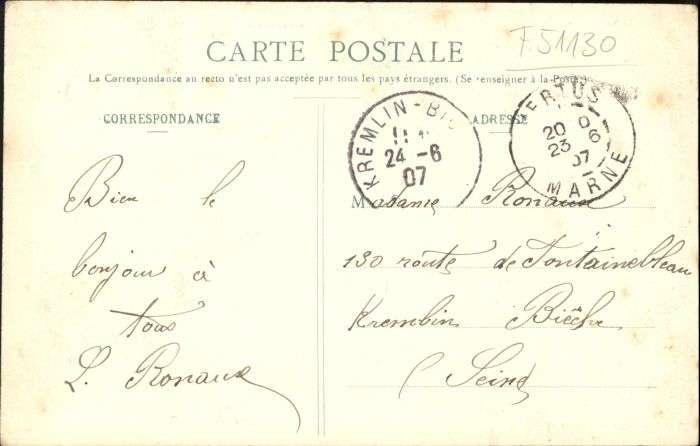 F51130
CARTE POSTALE
La Correspondance au recto n'est pas acceptée par tous les pays étrangers. (Se renseigner à la Poste)
CORRESPONDANCE
ADRESSE
KREMLIN-BIC
24 -6
07
ERTUS
20 0
23 6
07
MARNE
Bien le
bonjour à
tous
L. Ronaux
Madame Ronaux
130 route de Fontainebleau
Kremblin Biêche
(Seine